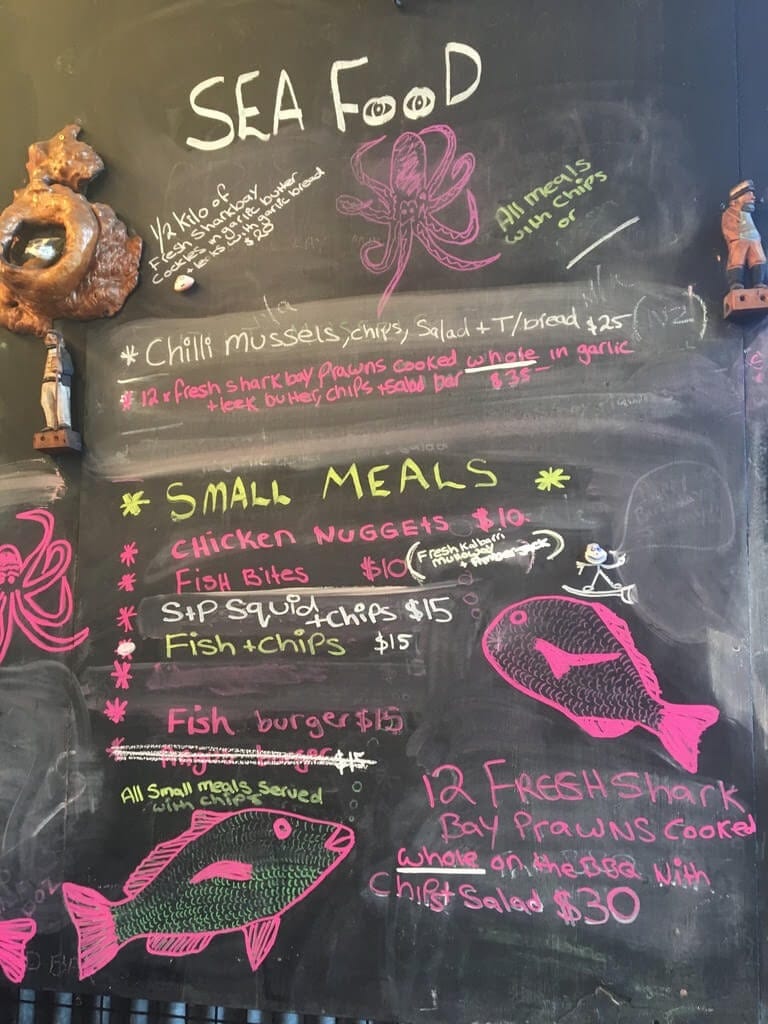 SEA FOOD
1/2 Kilo of
Fresh sharkbay
Cockles in garlic butter
+ leeks with garlic bread
$20
All meals
with chips
or
* Chilli mussels, chips, Salad + T/bread $25 (NZ)
* 12 x fresh shark bay Prawns cooked whole in garlic
+ leek butter, chips + salad bar $35-
* SMALL MEALS *
* CHICKEN NUGGETS $10
* FISH BITES $10 (Fresh Kalbarri
mulloway
+ Amberjack)
* S+P Squid + chips $15
Fish + chips $15
*
* Fish burger $15
burger $15
All Small meals served
with chips
12 FRESH Shark
Bay Prawns Cooked
whole on the BBQ with
Chips + Salad $30